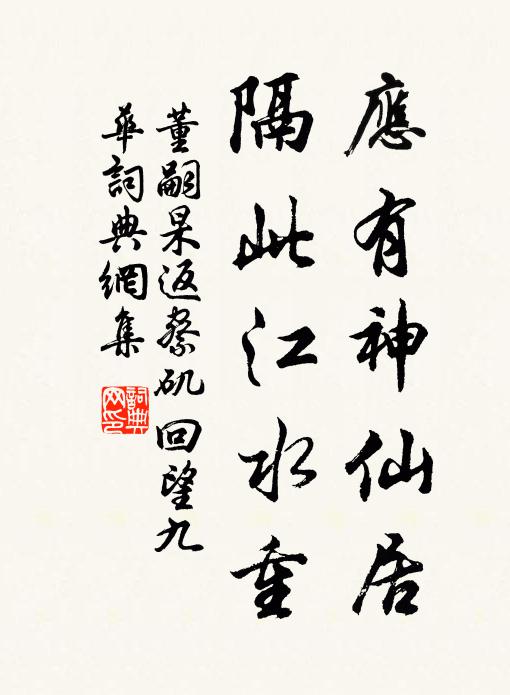 應有神仙居
隔此江水重
董嗣杲返蔡矶回望九
華詞典網集
詞典
网印